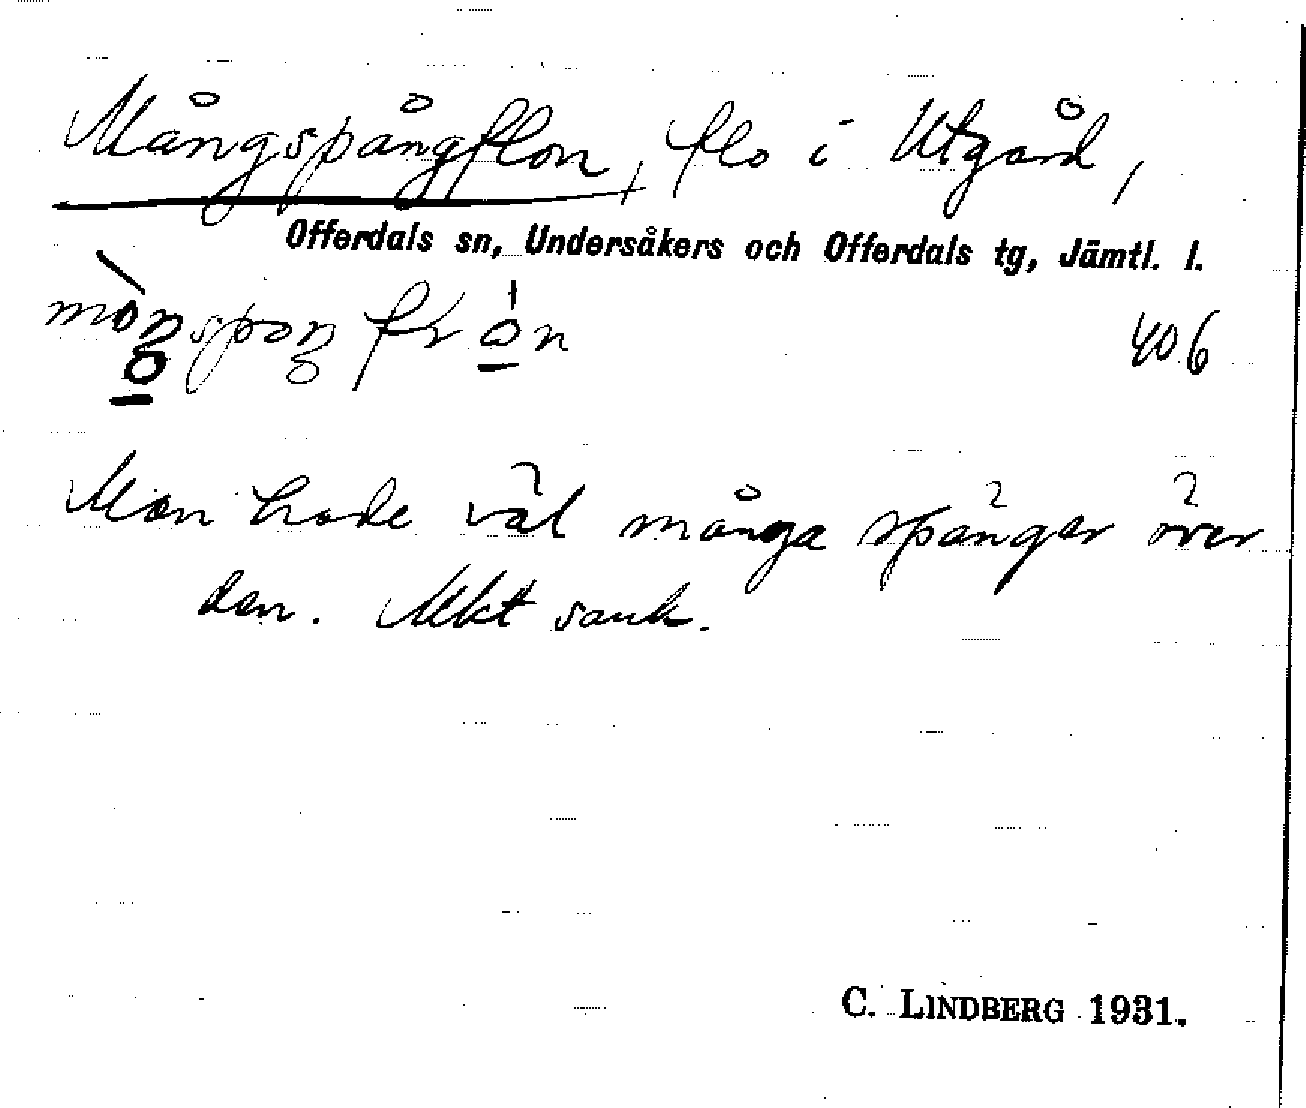 Mångspångflon, flo i Utgård,
Offerdals sn, Undersåkers och Offerdals tg, Jämtl. l.
406
Man hade väl många spänger över
den. Mkt sank.
C. LINDBERG 1931.